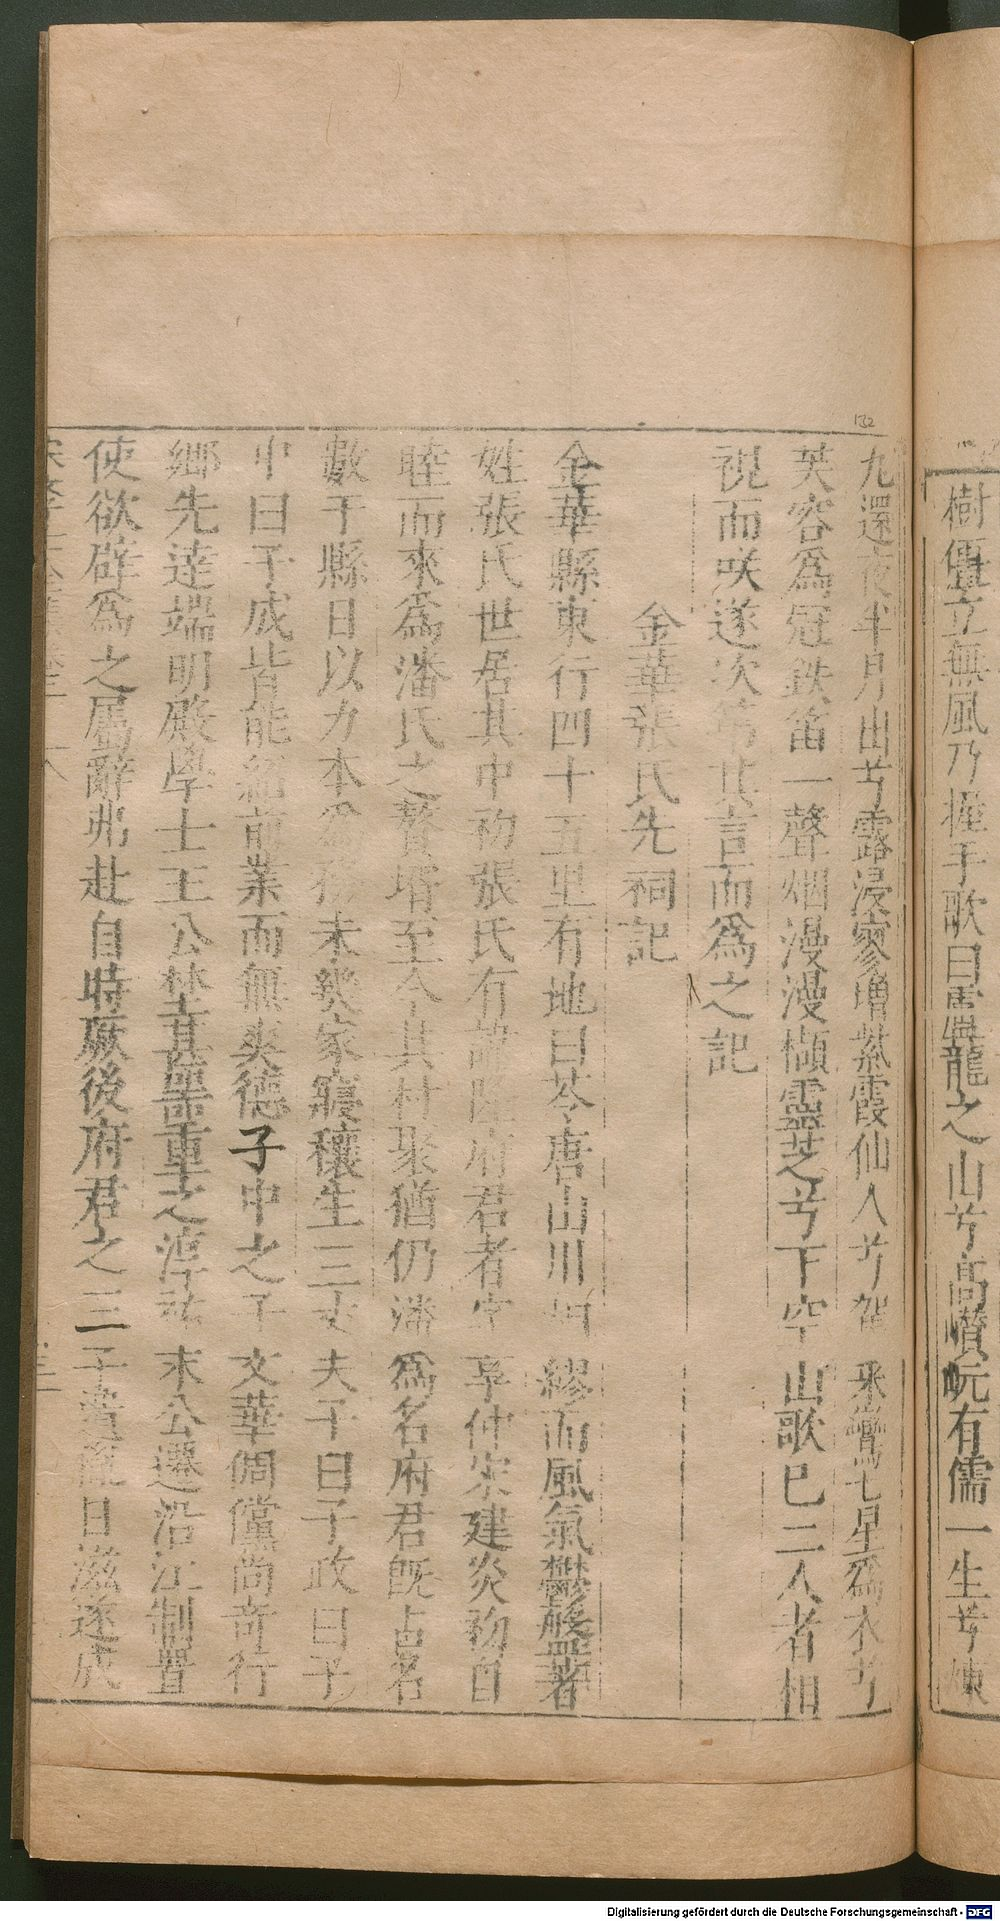 樹僊立無風乃握手歌曰臥龍之山兮高巑岏有儒一生兮
九還 半月山兮露浸寥增紫霞仙人兮 彩鸞七星爲衣兮
芙容爲冠鉄笛一聲烟漫漫擷靈芝兮下空山歌已二人者相
視而咲遂次第其言而爲之記
金華張氏先祠記
金華縣東行四十五里有地曰苓唐山川 繆而風氣鬱盤著
姓張氏世居其中初張氏有 府君者 亨仲宋建炎初自
睦而來爲潘氏之贅壻至今其村聚猶仍潘爲名府君旣占名
數于縣日以力本爲務未幾家寢穰生三丈夫子曰子政曰子
中曰子成皆能 前業而無爽德子中之子文華倜儻尚奇行
鄉先達端明殿學士王公埜甚器重之淳祐末公還沿江制置
使欲辟爲之屬辭弗赴自時厥後府君之三子 日滋遂成
132
Digitalisierung gefördert durch die Deutsche Forschungsgemeinschaft - DFG